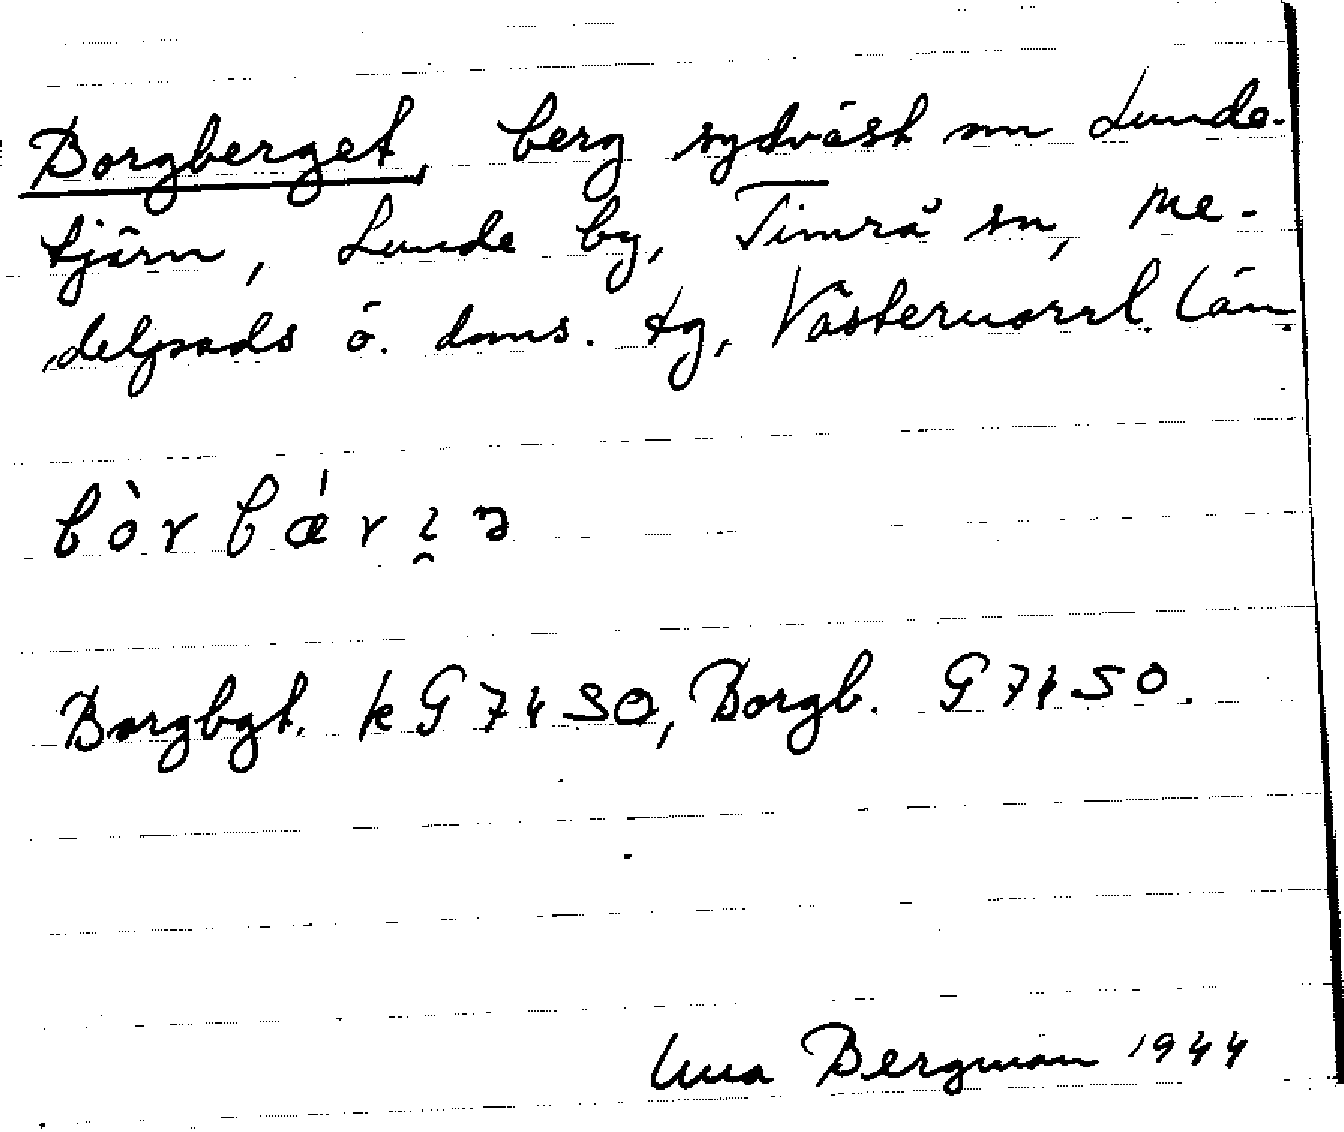 Borgberget, berg sydväst om Lunde-
tjärn, Lunde by, Timrå sn, Me-
delpads ö. doms. tg, Västernorrl. län.
bòrbǽrı̯ə
Borgbgt. kG 7450, Borgb. G 7450.
Una Bergman 1944